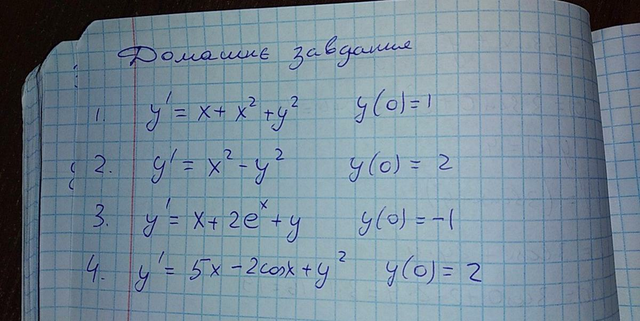 Домашнє завдання
1. y' = x + x² + y² y(0)=1
2. y' = x² - y² y(0) = 2
3. y' = x + 2eˣ + y y(0) = -1
4. y' = 5x - 2cosx + y² y(0) = 2